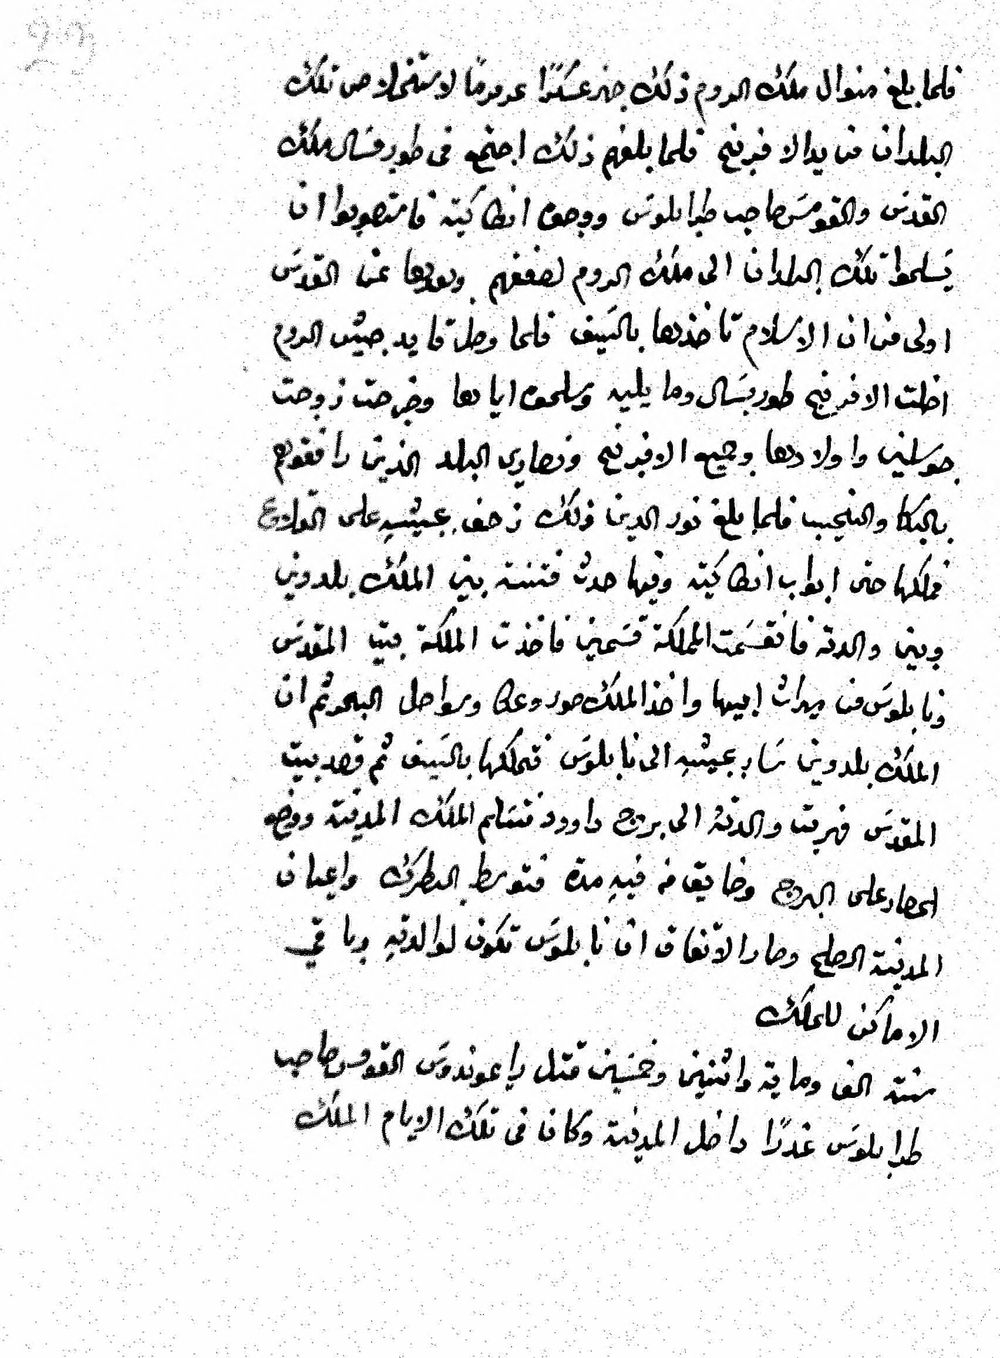 فلما بلغ منوال ملك الروم ذلك جهز عسكرًا عرمرمًا لاستخلاص تلك
البلدان من يد الافرنج فلما بلغهم ذلك اجتمع فى طوربسال ملك
القدس والقومس صاحب طرابلوس ووجوه انطاكية فاستصوبوا ان
يسلموا تلك البلدان الى ملك الروم لضعفهم وبعدها عن القدس
اولى من ان الاسلام تاخذها بالسيف فلما وصل قايد جيش الروم
اخلت الافرنج طوربسال وما يليه وسلموه اياها وخرجت زوجت
جوسلين واولادها وجميع الافرنج ونصارى البلد الذين رافقوهم
بالبكا والنحيب فلما بلغ نور الدين ذلك زحف بجيشه على القلاع
فملكها حتى ابواب انطاكية وفيها حدث فتنة بين الملك بلدوين
وبين والدته فانقسمت المملكة قسمين فاخذت الملكة بيت المقدس
ونابلوس من ميراث ابيها واخذ الملك صور وعكا وسواحل البحر ثم ان
الملك بلدوين سار بجيشه الى نابلوس فتملكها بالسيف ثم قصد بيت
المقدس فهربت والدته الى برج داوود فتسلم الملك المدينة ووضع
الحصار على البرج وضايق من فيه مدة فتوسط البطرك واعيان
المدينة الصلح وصار الاتفاق ان نابلوس تكون لوالدته وباقي
الاماكن للملك
سنة الف وماية واثنين وخمسين قتل رايموندوس القومس صاحب
طرابلوس غدرًا داخل المدينة وكان فى تلك الايام الملك